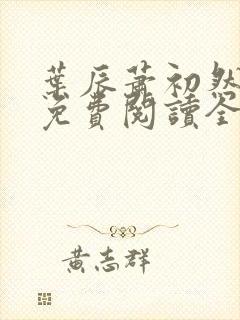 葉辰蕭初然
免費閱讀全
黃志群